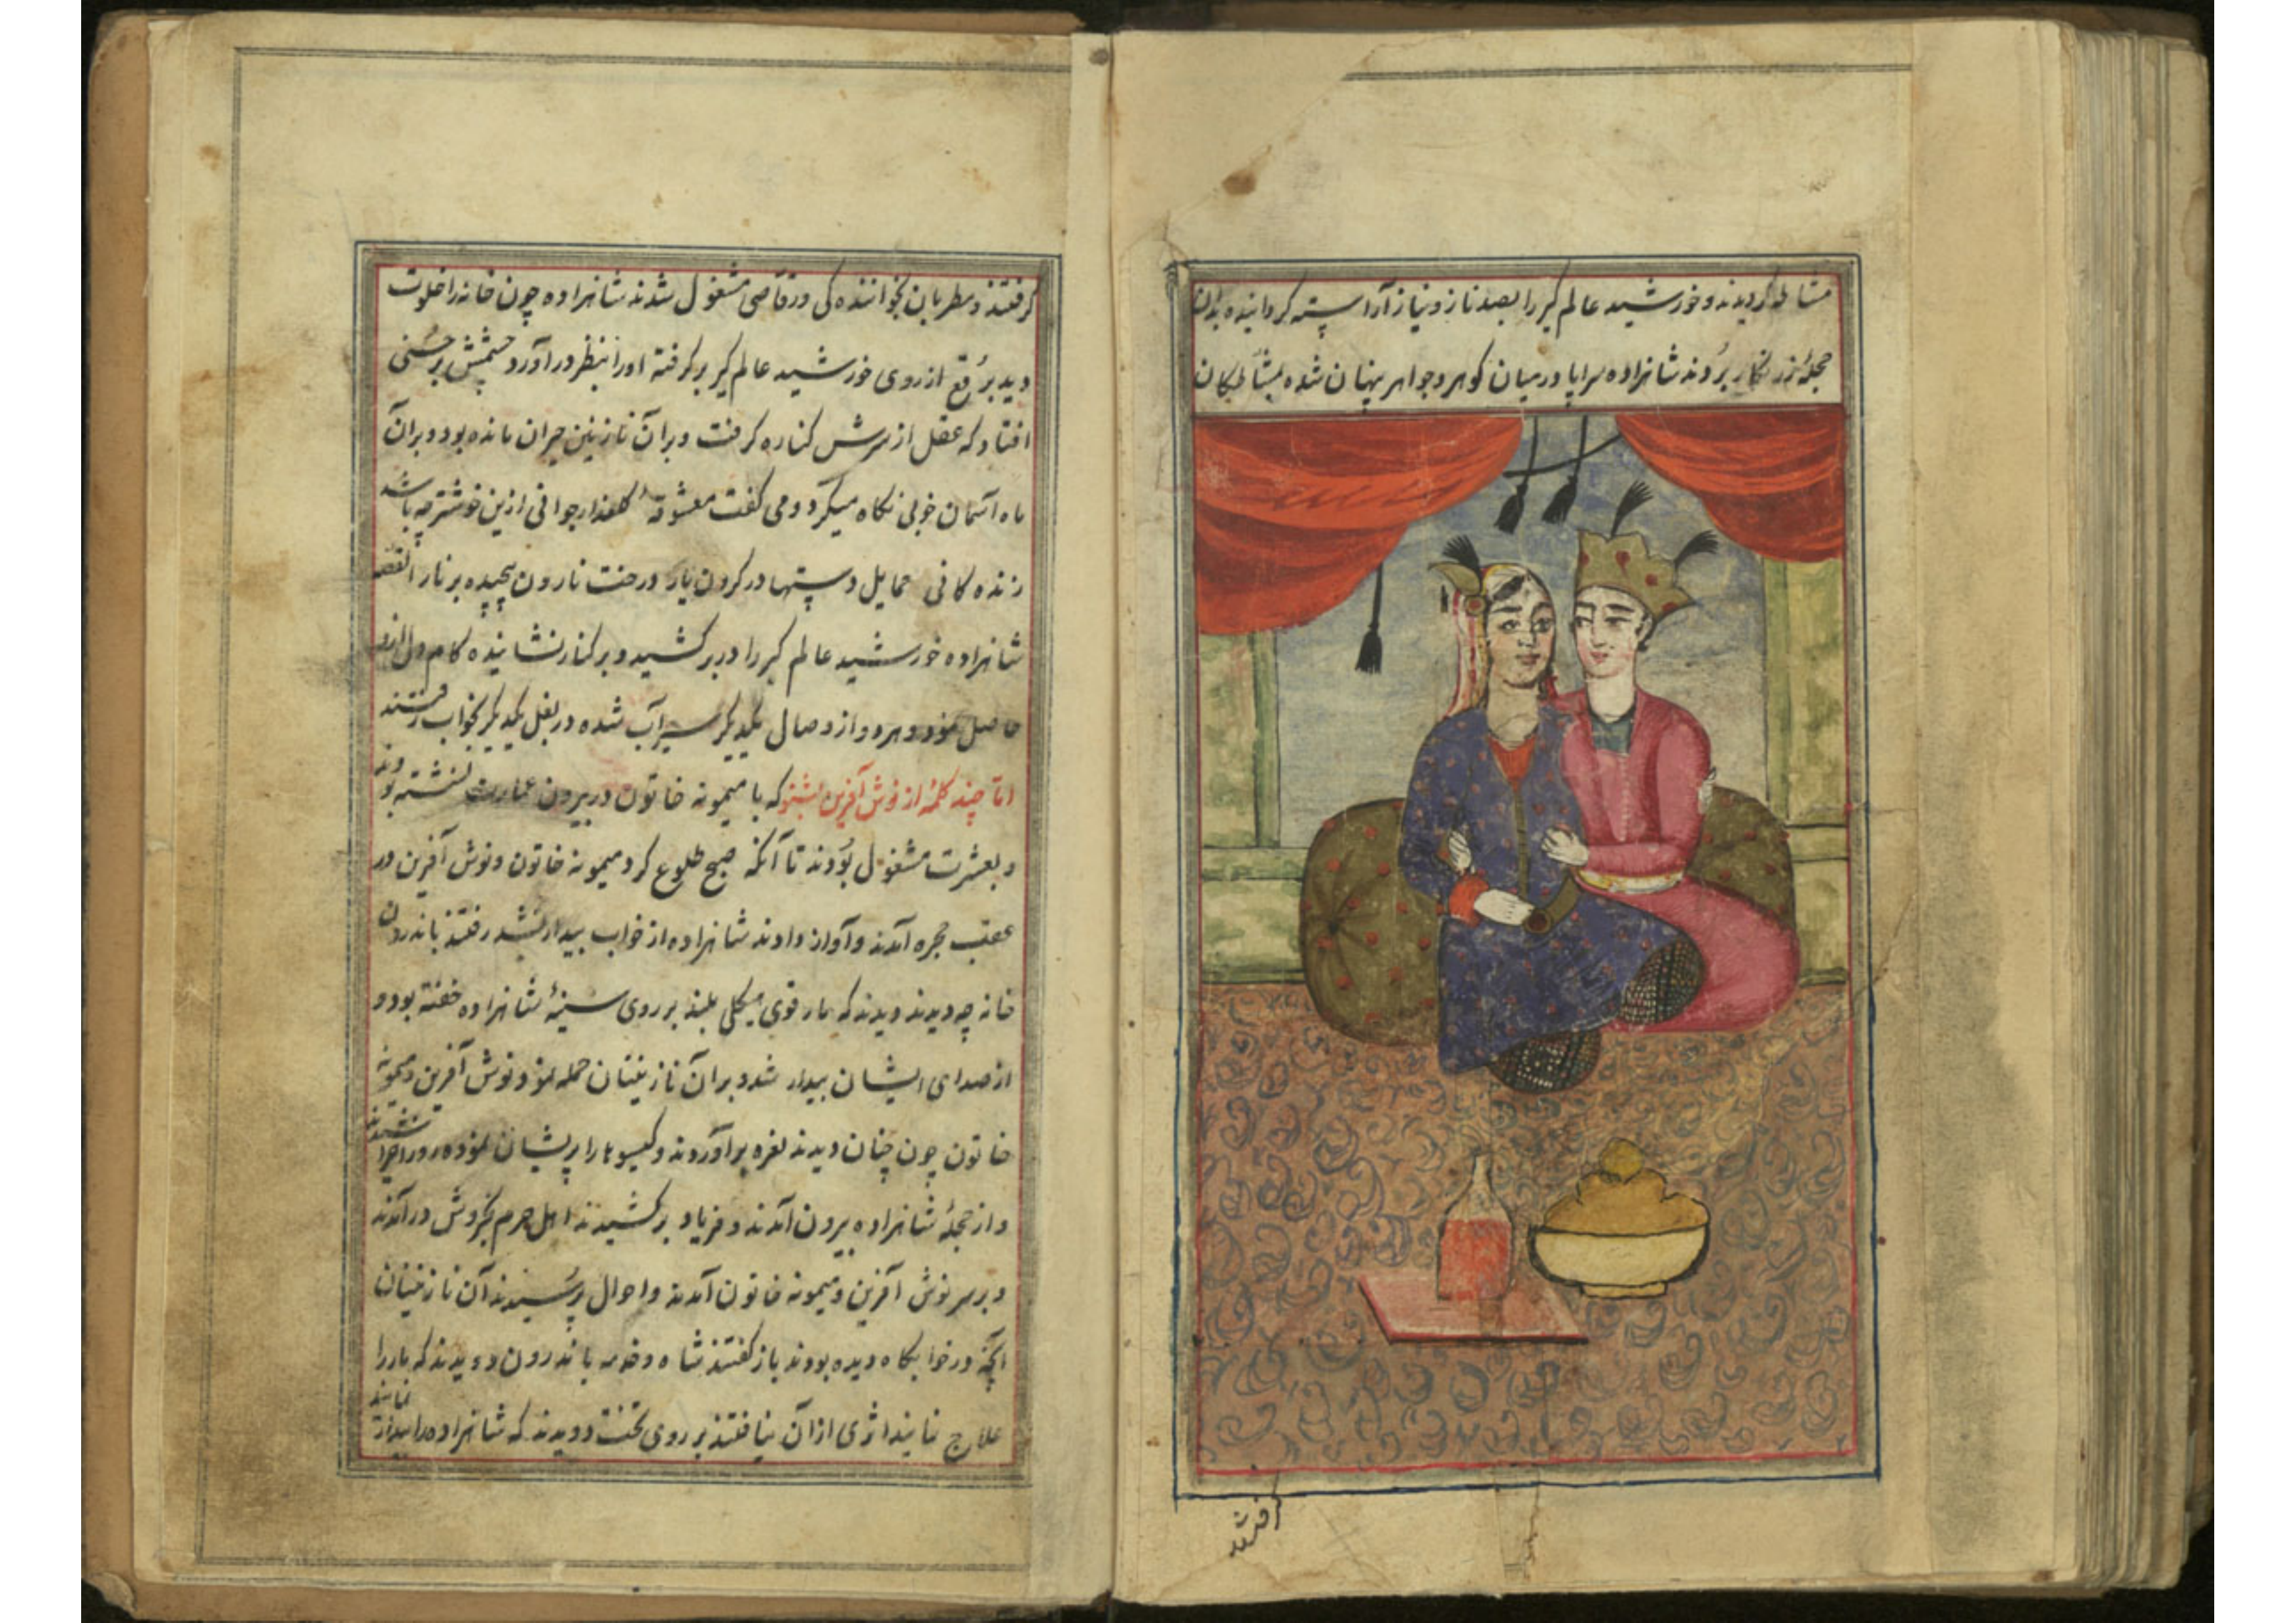 مشاطه گردیدند و خورشید عالم گیر را بصد ناز و نیاز آراسته گردانیده بدان
حجلهٔ زرنگار بُردند شاهزاده سراپا در میان گوهر و جواهر پنهان شده مشاطگان
گرفتند
گرفتند و مطربان بخوانندگی و رقّاصی مشغول شدند شاهزاده چون خانه را خلوت
دید بُرقع از روی خورشید عالم گیر برگرفته او را بنظر در آورد چشمش بر حُسنی
افتاد که عقل از سرش کناره گرفت و بر آن نازنین حیران مانده بود و بر آن
ماه آسمان خوبی نگاه میکرد و می گفت معشوقهٔ گلعذار جوانی ازین خوشتر چه باشد
زنده گانی حمایل دستها در گردن یار درخت نارون پیچیده بر نار القصه
شاهزاده خورشید عالم گیر را در بر کشید و بر کنار نشانیده کام دل ازو
حاصل نمود و هر دو از وصال یکدیگر سیرآب شده در بغل یکدیگر بخواب رفتند
امّا چند کلمهٔ از نوش آفرین بشنو که با میمونه خاتون در بیرون عمارت نشسته بودند
و بعشرت مشغول بوُدند تا آنکه صبح طلوع کرد میمونه خاتون و نوش آفرین در
عقب حجره آمدند و آواز دادند شاهزاده از خواب بیدار نشد رفتند باندرون
خانه چه دیدند دیدند که مار قوی هیکلی بلند بر روی سینهٔ شاهزاده خفته بود و
از صدای ایشان بیدار شد و بر آن نازنینان حمله نمود نوش آفرین و میمونه
خاتون چون چنان دیدند نعره برآوردند و گیسوها را پریشان نموده رو را خراشیدند
و از حجلهٔ شاهزاده بیرون آمدند و فریاد برکشیدند اهل حرم بخروش در آمدند
و بر سر نوش آفرین و میمونه خاتون آمدند و احوال پُرسیدند آن نازنینان
آنچه در خوابگاه دیده بودند باز گفتند شاه و خدمه باندرون دویدند که مار را
علاج نمایند اثری از آن نیافتند بر روی تخت دویدند که شاهزاده را بیدار نمایند